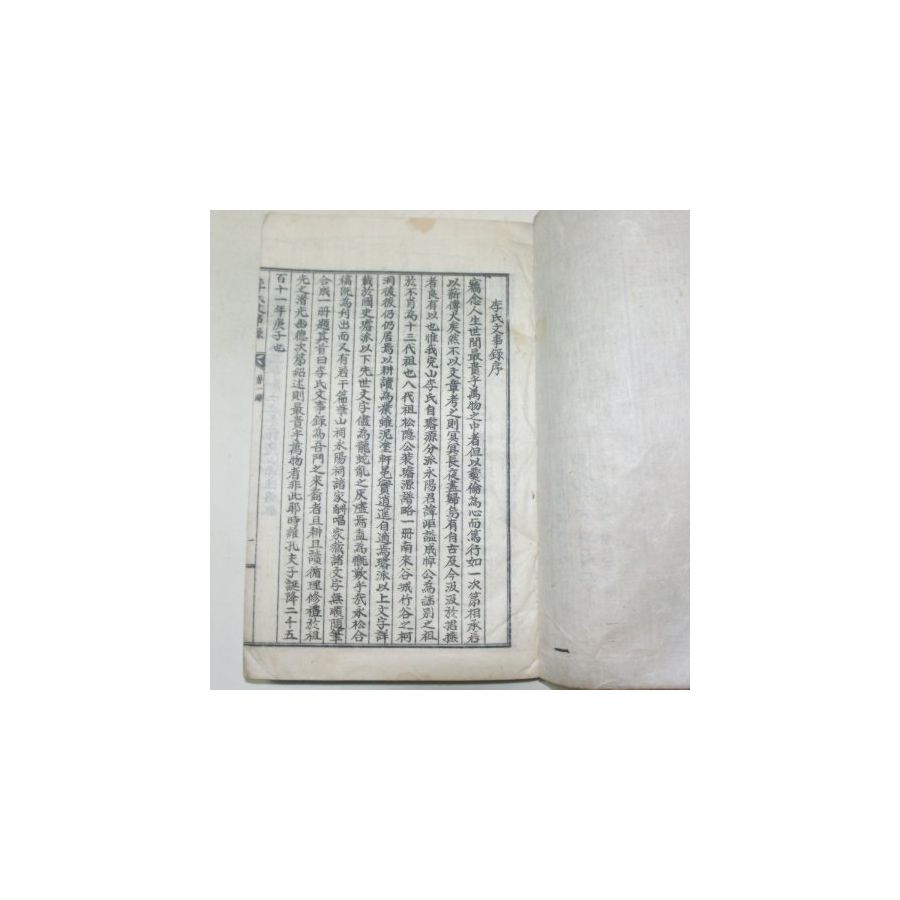 李氏文事錄序
竊念人生世間最貴乎萬物之中者但以彛倫為心而篤行如一次第相承若
以薪傳火矣然不以文章考之則冥冥長夜盡歸烏有自古及今汲汲於搭撫
者良有以也惟我完山李氏自璿源分派永陽君諱岠謚成悼公為認別之祖
於不肖為十三代祖也八代祖松隱公裝璿源譜略一冊南來谷城竹谷之柯
洞後後仍仍居焉以耕讀為業雖泥塗軒冕實逍遙自適焉璿派以上文字詳
載於國史璿派以下先世文字儘為龍蛇亂之灰燼焉盍為慨歎乎哉永松合
稿既為刊出而又有若干篇華山祠永陽祠諸家酬唱家藏諸文字無順隨筆
合成一冊題其首曰李氏文事錄為吾門之來裔者且耕且讀循理修禮於祖
先之潛光幽德次第紹述則最貴乎萬物者非此耶時維孔夫子誕降二千五
百十一年庚子也
李氏文事錄 序 一